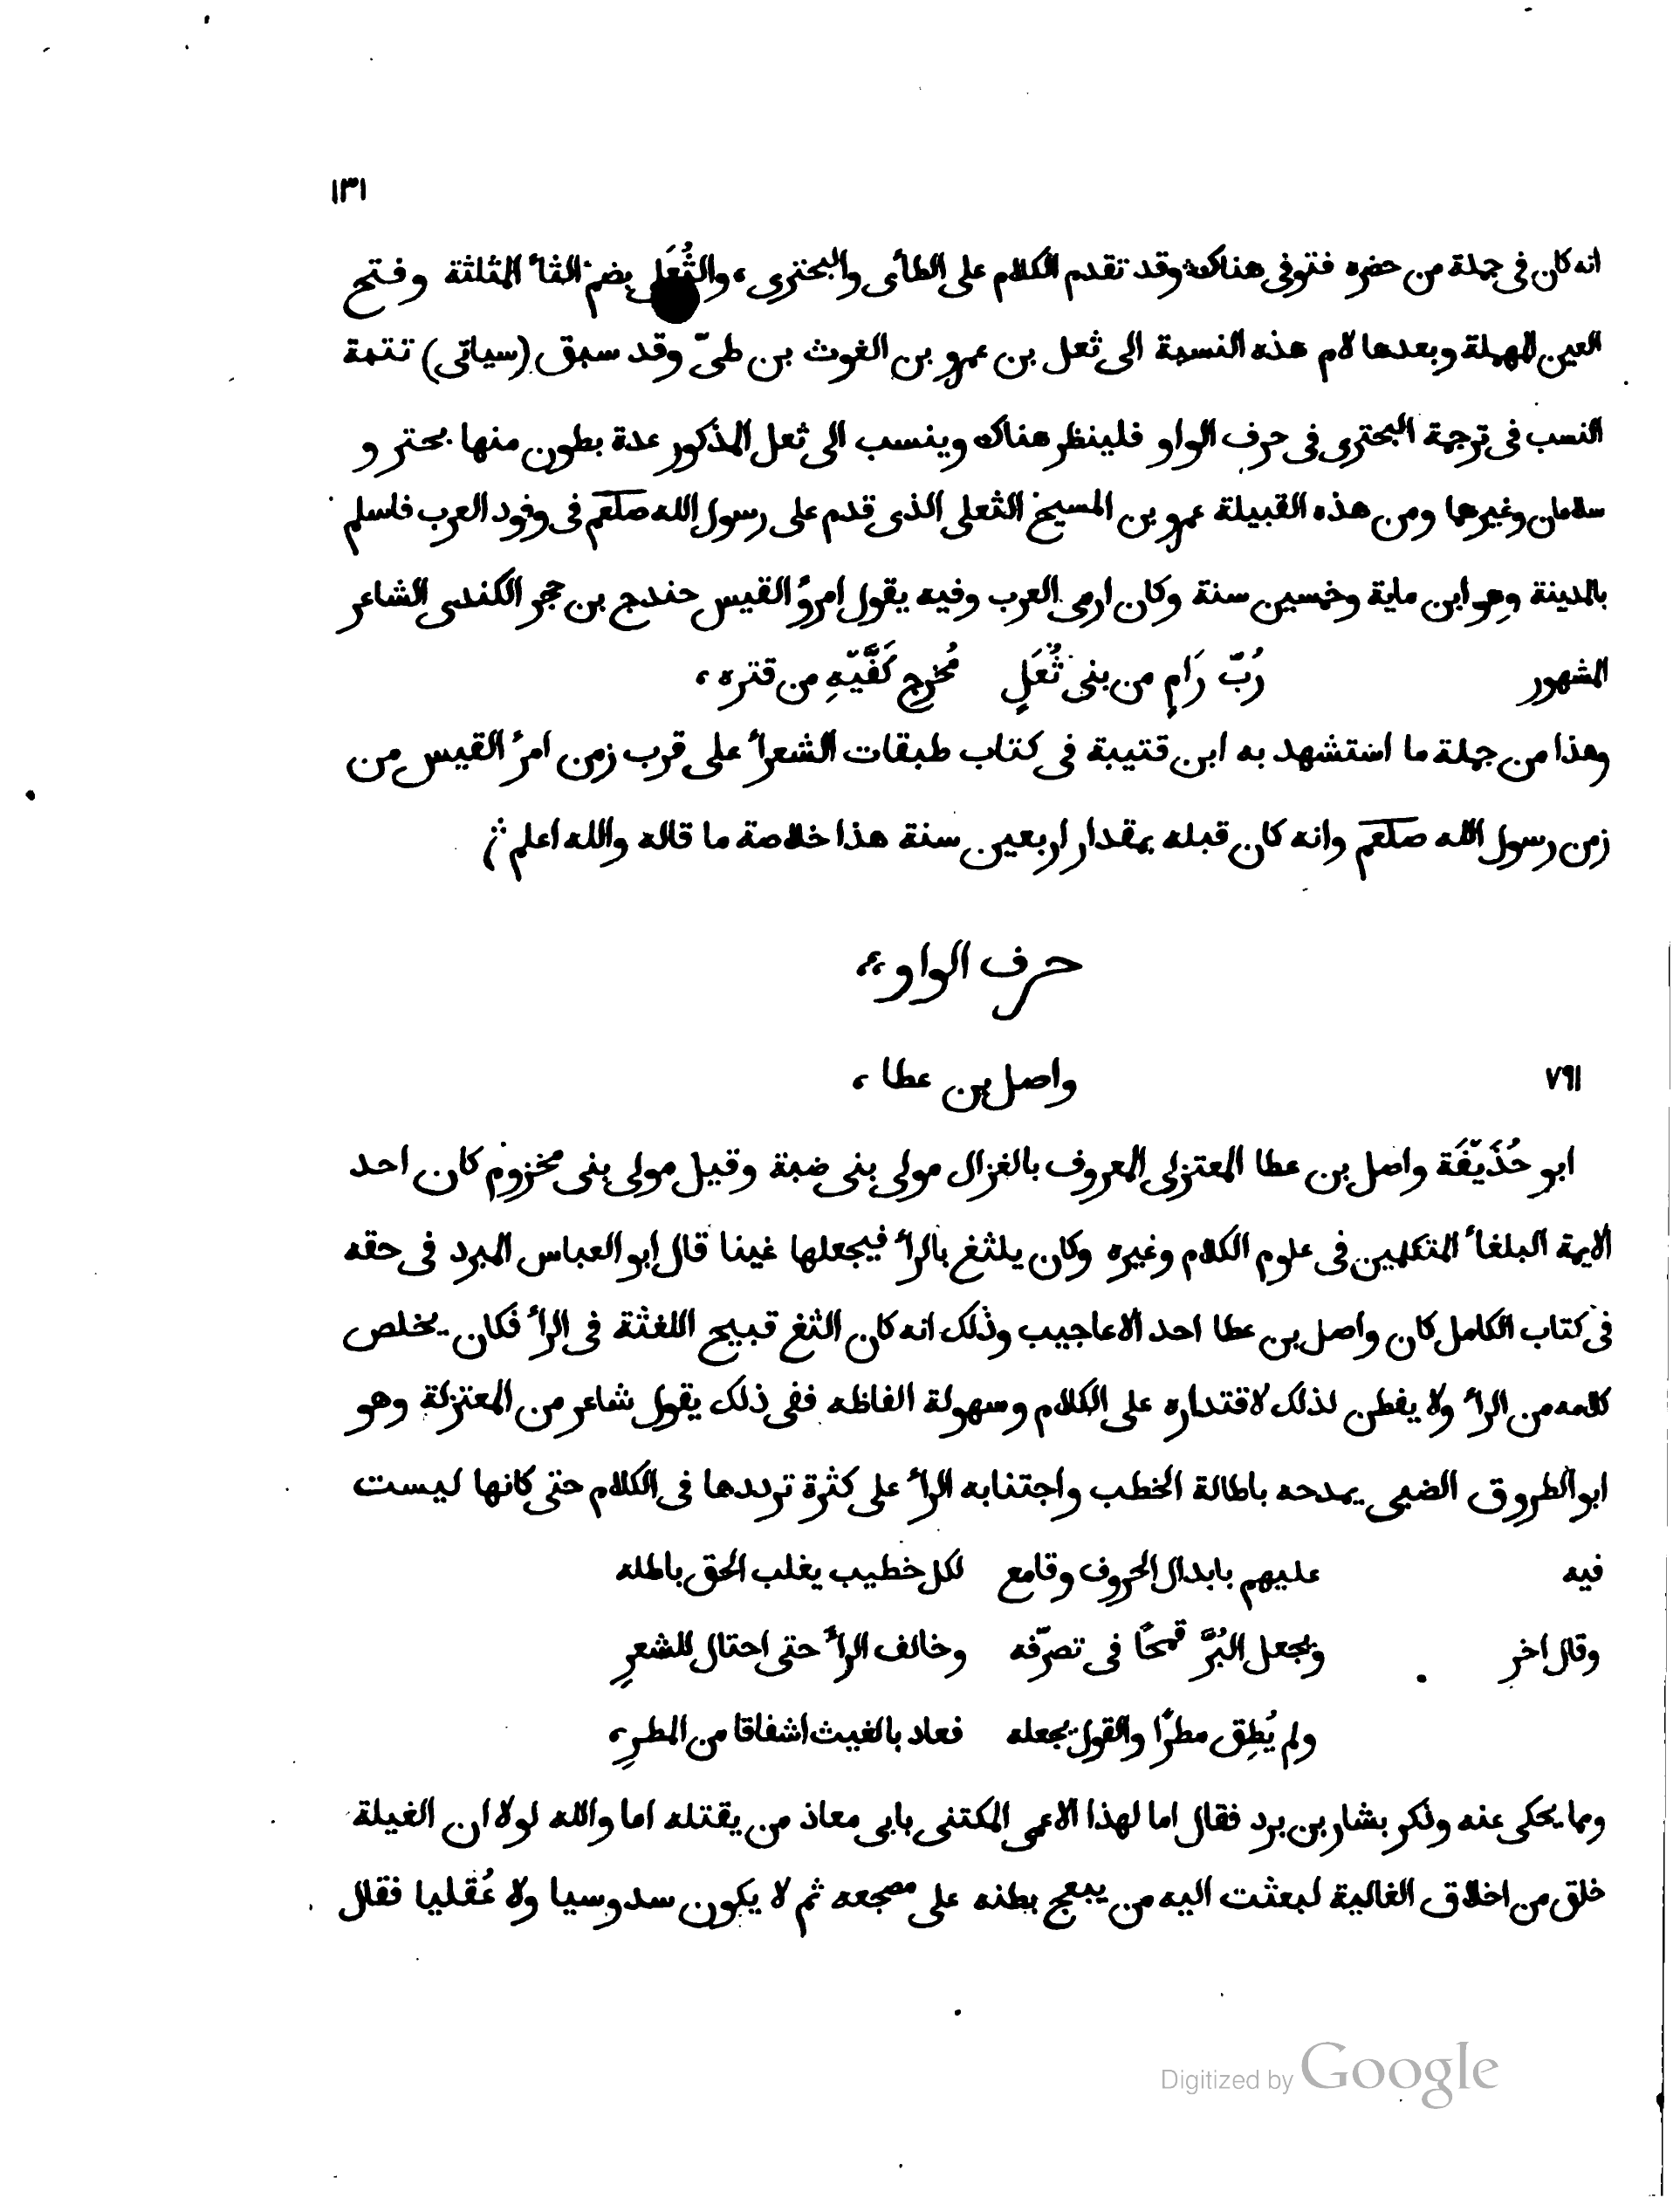 ١٣١
انه كان فى جملة من حضره فتوفى هناك وقد تقدم الكلام على الطأى والبحترى، والثُعَلى بضم الثأ المثلثة وفتح
العين المهملة وبعدها لام هذه النسبة الى ثعل بن عمرو بن الغوث بن طىّ وقد سبق (سياتى) تتمة
النسب فى ترجمة البحترى فى حرف الواو فلينظر هناك وينسب الى ثعل المذكور عدة بطون منها بحتر و
سلامان وغيرهما ومن هذه القبيلة عمرو بن المسيح الثعلى الذى قدم على رسول الله صلعم فى وفود العرب فاسلم
بالمدينة وهو ابن ماية وخمسين سنة وكان ارمى العرب وفيه يقول امروُ القيس حندج بن حجر الكندى الشاعر
المشهور رُبّ رَامٍ من بنى ثُعَلٍ مُخرِجٍ كَفَّيّهِ من قتره،
وهذا من جملة ما استشهد به ابن قتيبة فى كتاب طبقات الشعرأ على قرب زمن امرُ القيس من
زمن رسول الله صلعم وانه كان قبله بمقدار اربعين سنة هذا خلاصة ما قاله والله اعلم
حرف الواو
واصل بن عطا،
٧٩١
ابو حُذَيّفَة واصل بن عطا المعتزلى المعروف بالغزال مولى بنى ضبة وقيل مولى بنى مخزوم كان احد
الايمة البلغأ المتكلمين فى علوم الكلام وغيره وكان يلثغ بالرأ فيجعلها غينا قال ابو العباس المبرد فى حقه
فى كتاب الكامل كان واصل بن عطا احد الاعاجيب وذلك انه كان الثغ قبيح اللغثة فى الرأ فكان يخلص
كلامه من الرأ ولا يفطن لذلك لاقتداره على الكلام وسهولة الفاظه ففى ذلك يقول شاعر من المعتزلة وهو
ابو الطروق الضبى يمدحه باطالة الخطب واجتنابه الرأ على كثرة ترددها فى الكلام حتى كانها ليست
فيه عليهم بابدال الحروف وقامع لكل خطيب يغلب الحق باطله
وقال اخر ويجعل البُرَّ قمحًا فى تصرّفه وخالف الرأ حتى احتال للشعرِ
ولم يُطِق مطرًا والقول يجعله فعاد بالغيث اشفاقا من المطرِ،
ومما يحكى عنه وذكر بشار بن برد فقال اما لهذا الاعمى المكتنى بابى معاذ من يقتله اما والله لولا ان الغيلة
خلق من اخلاق الغالية لبعثت اليه من يبعج بطنه على مضجعه ثم لا يكون سدوسيا ولا عُقليا فقال
Digitized by Google